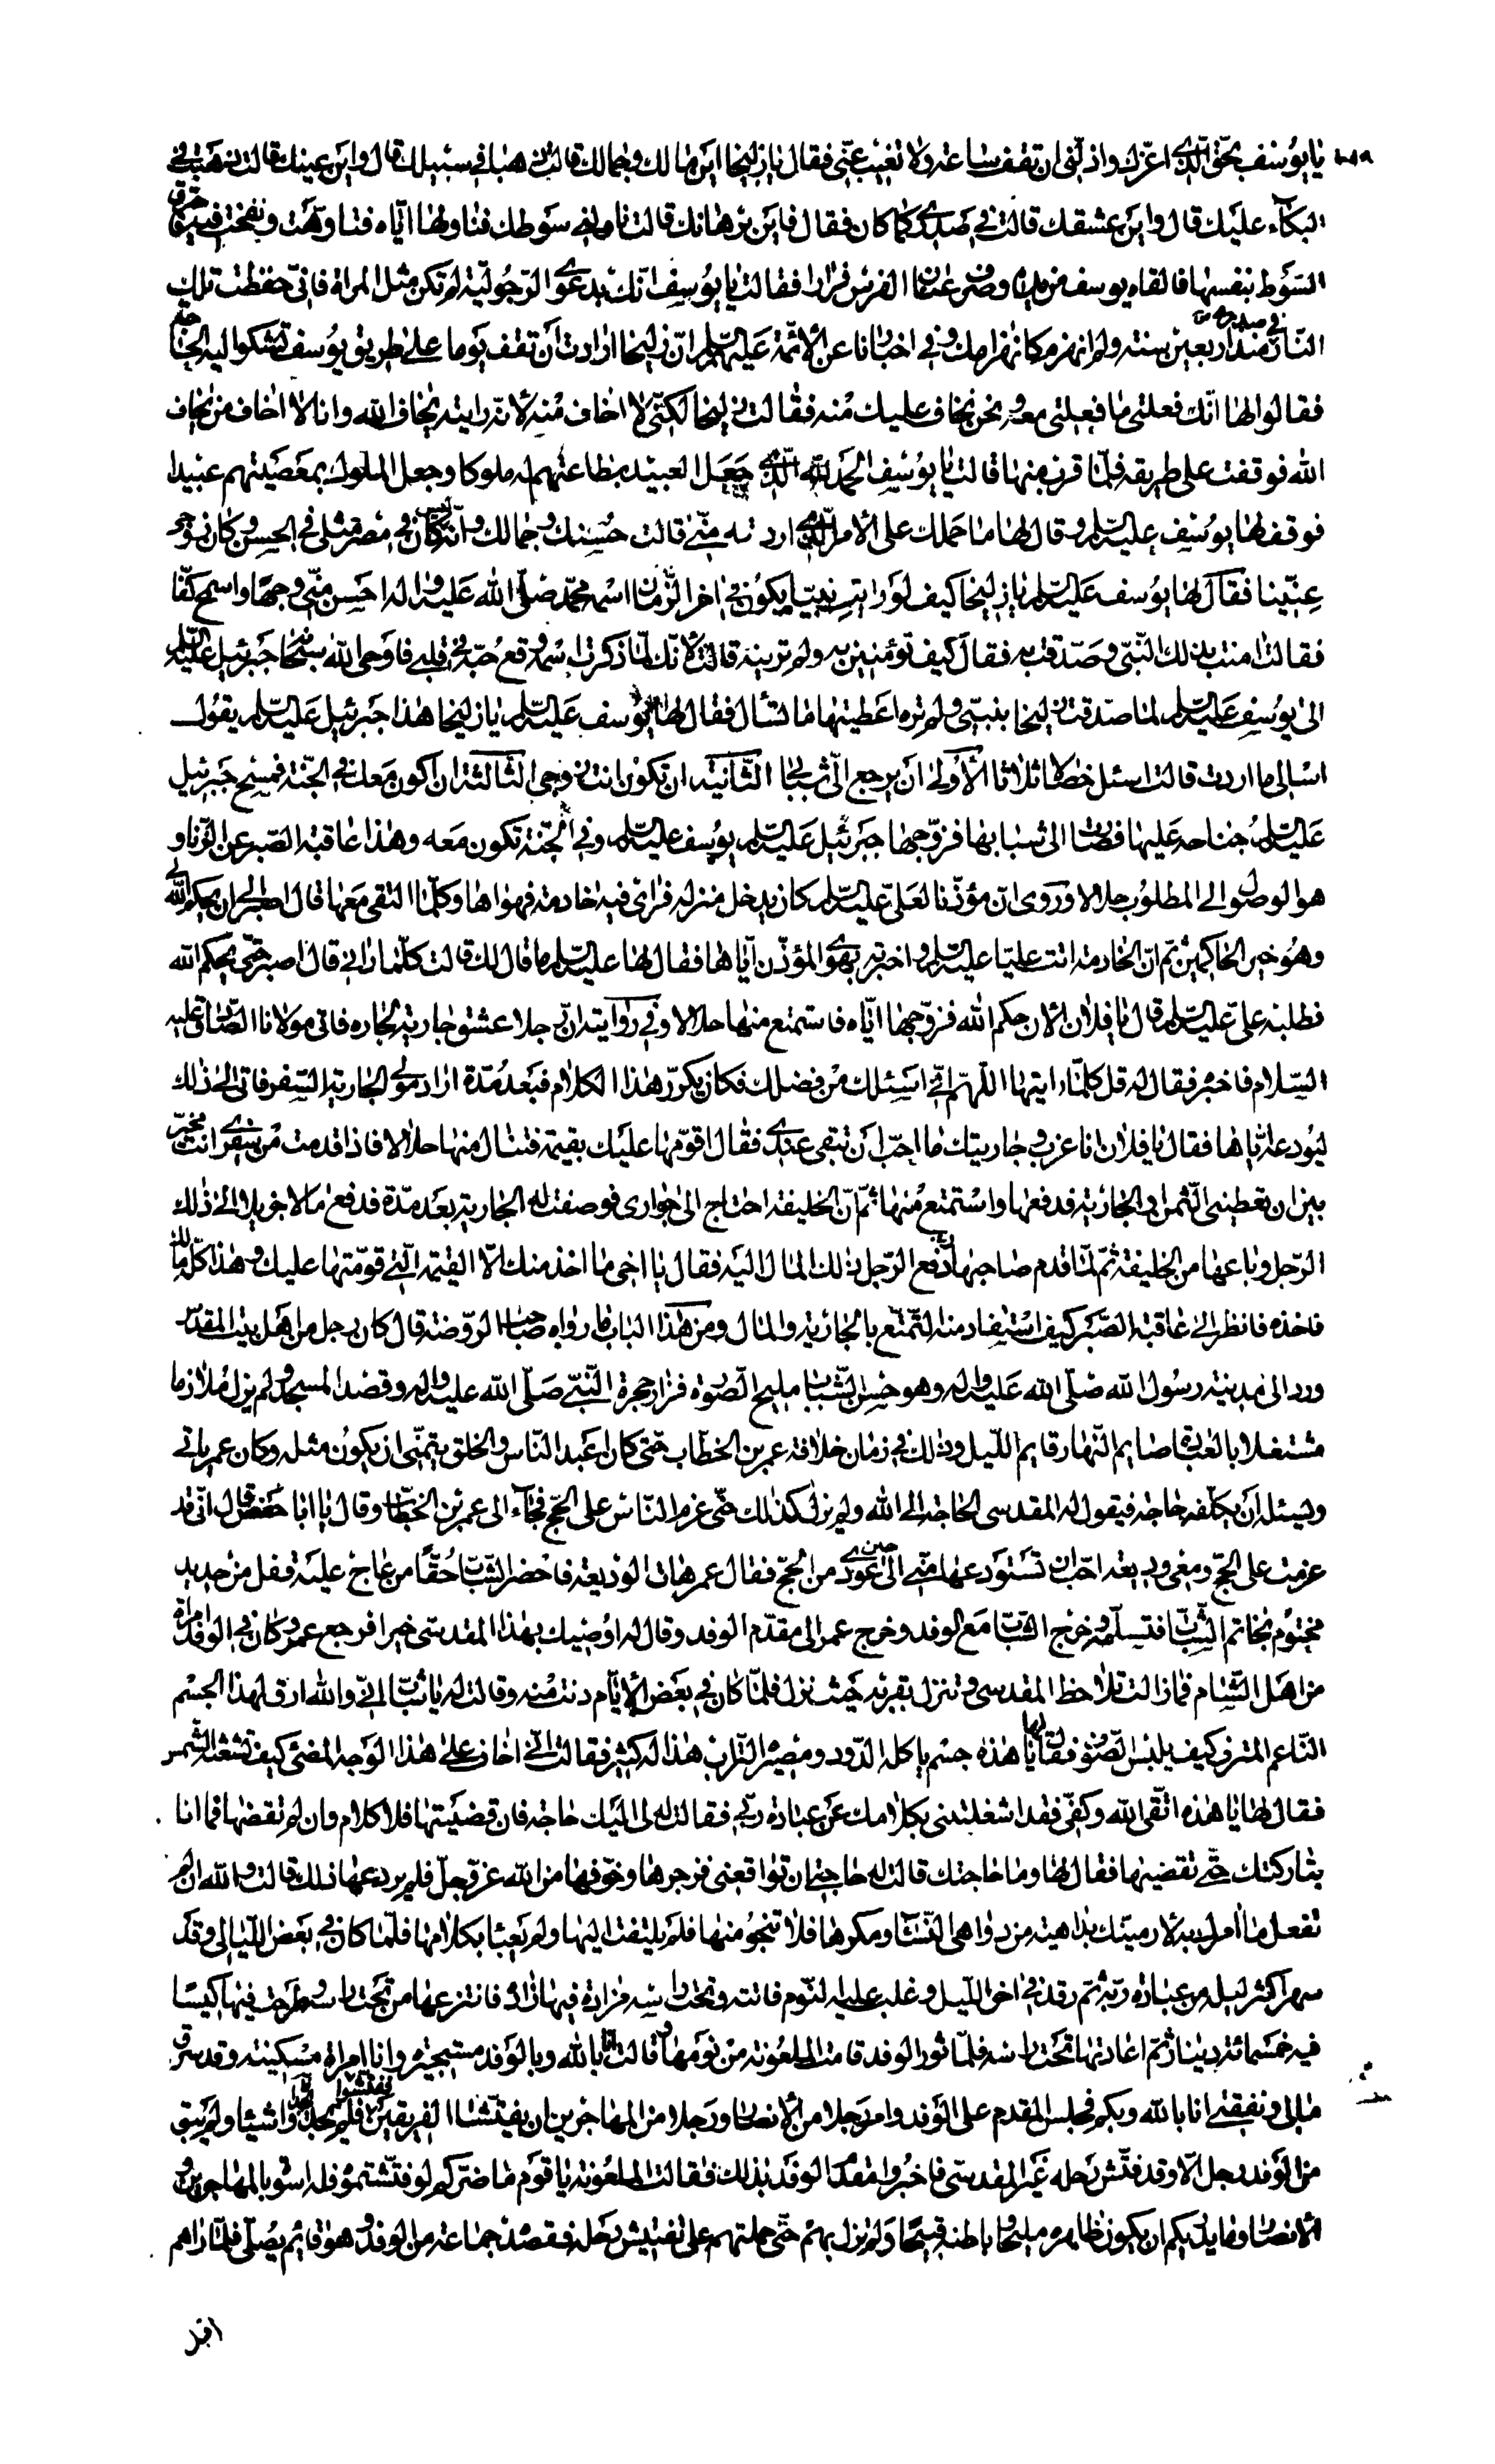 يا يوسف بحق الذي اعزك واذلني ان تقف ساعة ولا تغيب عني فقال يا زليخا اين مالك وجمالك قالت ذهبا في سبيلك قال واين عينك قالت ذهبت في
البكاء عليك قال واين عشقك قالت في صدري كما كان فقال فاين برهانك قالت ناولني سوطك فناولها اياه فتاوهت ونفخت فيه فاحترق
السوط بنفسها فالقاه يوسف من يده وصرف عنان الفرس فرارا فقالت يا يوسف انك بدعوى الرجولية لم تكن مثل المراة فاني حفظت تلك
النار في صدري منذ اربعين سنة ولم انهزم كانهزامك وفي اخبارنا عن الائمة عليهم السلام ان زليخا ارادت ان تقف يوما على طريق يوسف تشكوا اليه الحاجة
فقالوا لها انك فعلتي ما فعلتي معه ونحن نخاف عليك منه فقالت زليخا لكني لا اخاف منه لانه رايته يخاف الله وانا لا اخاف من يخاف
الله فوقفت على طريقه فلما قرب منها قالت يا يوسف الحمد لله الذي جعل العبيد بطاعتهم له ملوكا وجعل الملوك بمعصيتهم عبيدا
فوقف لها يوسف عليه السلام وقال لها ما حملك على الامر الذي اردته مني قالت حسنك وجمالك وانه ليس كان في مصر مثلي في الحسن وكان زوجي
عنينا فقال لها يوسف عليه السلام يا زليخا كيف لو رايت نبيا يكون في اخر الزمان اسمه محمد صلى الله عليه واله احسن مني وجها واسمح كفا
فقالت امنت بذلك النبي وصدقت به فقال كيف تؤمنين به ولم ترينه قالت لانك لما ذكرت اسمه وقع حبه في قلبي فاوحى الله سبحانه جبرئيل عليه السلام
الى يوسف عليه السلام لما صدقت زليخا بنبيي ولم تره اعطيتها ما تسأل فقال لها يوسف عليه السلام يا زليخا هذا جبرئيل عليه السلام يقول
اسالي ما اردت قالت اسئل خصالا ثلاثا الأولى ان يرجع الي شبابي الثانية ان تكون انت زوجي الثالثة ان اكون معك في الجنة فمسح جبرئيل
عليه السلام جناحه عليها فصارت الى شبابها فزوجها جبرئيل عليه السلام يوسف عليه السلام وفي الجنة تكون معه وهذا عاقبة الصبر عن الزنا و
هو الوصول الى المطلوب حلالا وروى ان مؤذنا لعلي عليه السلام كان يدخل منزله فراى فيه خادمة فهواها وكلما التقى معها قال اصبر الى ان يحكم الله لي
وهو خير الحاكمين ثم ان الخادمة اتت عليا عليه السلام واخبرته بهوى المؤذن اياها فقال لها عليه السلام ما قال لك قالت كلما راني قال اصبر حتى يحكم الله
فطلبه علي عليه السلام قال يا فلان الان حكم الله فزوجها اياه فاستمتع منها حلالا وفي رواية ان رجلا عشق جارية لجاره فاتى مولانا الصادق عليه
السلام فاخبره فقال له قل كلما رايتها اللهم اني اسئلك من فضلك فكان يكرر هذا الكلام فبعد مدة اراد مولى الجارية السفر فاتى الى ذلك
ليودعه اياها فقال يا فلان انا عزب وجاريتك ما احب ان تبقى عندي فقال اقومها عليك بقيمة فتنال منها حلالا فاذا قدمت من سفري انت مخير
بين ان تعطيني الثمن او الجارية فدفعها واستمتع منها ثم ان الخليفة احتاج الى جواري فوصفت له الجارية بعد مدة فدفع مالا جزيلا الى ذلك
الرجل وباعها من الخليفة ثم لما قدم صاحبها دفع الرجل ذلك المال اليه فقال يا اخي ما اخذ منك الا القيمة التي قومتها عليك وهذا كله مالك
فاخذه فانظر الى عاقبة الصبر كيف استفاد منه التمتع بالجارية والمال ومن هذا الباب ما رواه صاحب الروضة قال كان رجل من اهل بيت المقدس
ورد الى مدينة رسول الله صلى الله عليه واله وهو حسن الشباب مليح الصورة فزار حجرة النبي صلى الله عليه واله وقصد المسجد ولم يزل ملازما
مشتغلا بالعبادة صايم النهار قايم الليل وذلك في زمان خلافة عمر بن الخطاب حتى كان اعبد الناس والخلق يتمنى ان يكون مثله وكان عمر ياتي
ويسئله ان يكلفه حاجة فيقول له المقدسي الحاجة الى الله ولم يزل كذلك حتى عزم الناس على الحج فجاء الى عمر بن الخطاب وقال يا ابا حفص قال اني قد
عزمت على الحج ومعي وديعة احب ان تستودعها مني الى حين عودي من الحج فقال عمر هات الوديعة فاحضر الشاب حقا من عاج عليه قفل من حديد
مختوم بخاتم الشاب فتسلمه وخرج الشاب مع الوفد وخرج عمر الى مقدم الوفد وقال له اوصيك بهذا المقدسي خيرا فرجع عمر وكان في الوفد امراة
من اهل الشام فما زالت تلاحظ المقدسي وتنزل بقربه حيث نزل فلما كان في بعض الايام دنت منه وقالت له يا شاب اني والله ارق لهذا الجسم
الناعم المترف كيف يلبس الصوف فقال لها يا هذه جسم ياكله الدود ومصيره التراب هذا له كثير فقالت اني اخاف على هذا الوجه المضئ كيف تشعثه الشمس
فقال لها يا هذه اتقي الله وكفي فقد اشغلتني بكلامك عن عبادة ربي فقالت له لي اليك حاجة فان قضيتها فلا كلام وان لم تقضها فما انا
بتاركتك حتى تقضيها فقال لها وما حاجتك قالت له حاجتي ان تواقعني فزجرها وخوفها من الله عز وجل فلم يردعها ذلك قالت والله ان لم
تفعل ما امرك به لارمينك بداهية من دواهي النساء ومكرها فلا تنجو منها فلم يلتفت اليها ولم يعبا بكلامها فلما كان في بعض الليالي وقد
سهر اكثر ليله من عبادة ربه ثم رقد في اخر الليل وغلب عليه النوم فاتته وتحت راسه مزادة فيها زاده فانتزعها من تحت راسه وطرحت فيها كيسا
فيه خمسمائة دينار ثم اعادتها تحت راسه فلما ثور الوفد قامت الملعونة من نومها وقالت انا بالله وبالوفد مستجيرة وانا امراة مسكينة وقد سرق
مالي ونفقتي انا بالله وبكم فجلس المقدم على الوفد وامر رجلا من الانصار ورجلا من المهاجرين ان يفتشا الفريقين ففتشوا فلم يجدوا شيئا ولم يبق
من الوفد رجل الا وقد فتش رحله غير المقدسي فاخبروا مقدم الوفد بذلك فقالت الملعونة يا قوم ما ضركم لو فتشتموه فله اسوة بالمهاجرين و
الانصار وما يدريكم ان يكون ظاهره مليحا وباطنه قبيحا ولم تزل بهم حتى حملتهم على تفتيش رحله فقصده جماعة من الوفد وهو قائم يصلي فلما راهم
اقبل